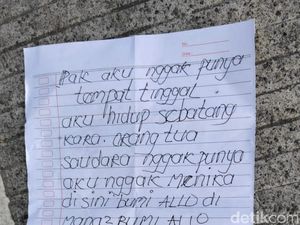 No.
Date.
Pak aku nggak punya
tempat tinggal.
aku hidup sebatang
kara. orang tua
saudara nggak punya
aku nggak menika
disini bumi ALLO di
mana2 BUMI ALLO
detikcom